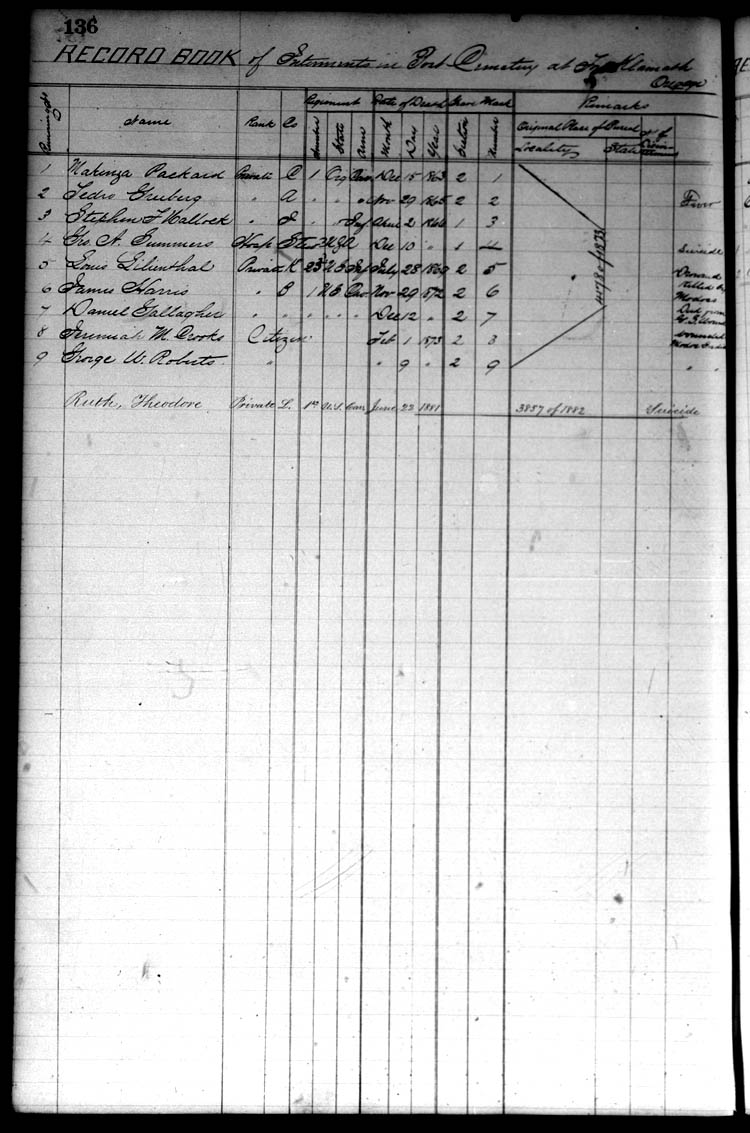 136
RECORD BOOK of Interments in Post Cemetery at Ft Klamath
Oregon
Running No Name Rank Co Regiment Date of Death Grave Mark Remarks
Number State Arm Month Day Year Section Number Original Place of Burial No of
Locality State
1 Makinza Packard Private C 1 Org Cav Dec 15 1863 2 1
2 Pedro Gruberg " A " " " Nov 29 1865 2 2 Fever
3 Stephen F Hallock " I " " Inf April 2 1866 1 3
4 Geo A. Summers Hosp Stew U.S.A Dec 10 " 1 4 Suicide
5 Louis Lilienthal Private K 23d U.S Inf July 28 1869 2 5 Drowned
6 James Harris " B 1 U.S Cav Nov 29 1872 2 6 Killed by
Modocs
7 Daniel Gallagher " " " " " Dec 12 " 2 7 Died from
G. S. Wound
8 Jeremiah M. Crooks Citizen Feb 1 1873 2 8 wounded
Modoc
9 George W. Roberts " " 9 " 2 9 " "
4178 of 1873
Ruth, Theodore. Private L. 1st U.S. Cav June 22 1881 3857 of 1882 Suicide